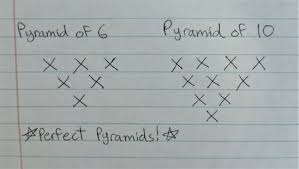 Pyramid of 6 Pyramid of 10
X X X X X X X
X X X X X
X X X
X
☆Perfect Pyramids!☆